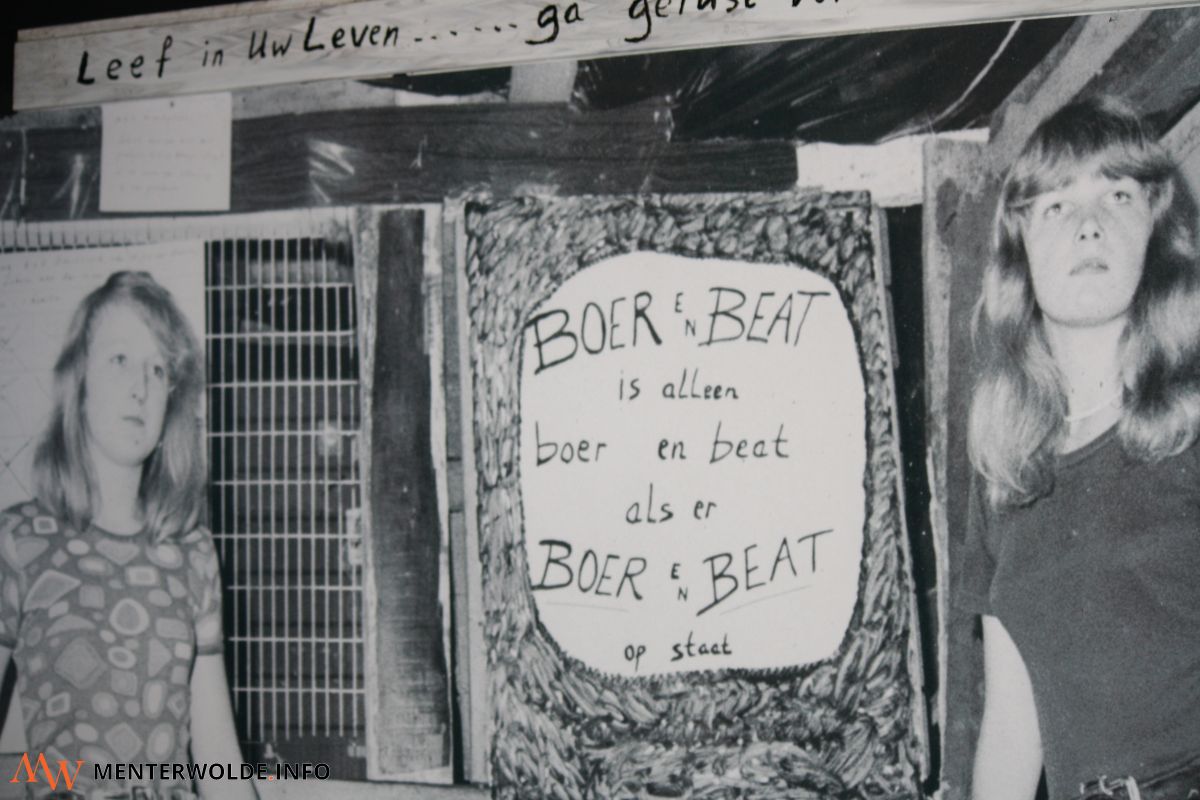 Leef in Uw Leven ....... ga gerust
BOER EN BEAT
is alleen
boer en beat
als er
BOER EN BEAT
op staat
MW MENTERWOLDE.INFO